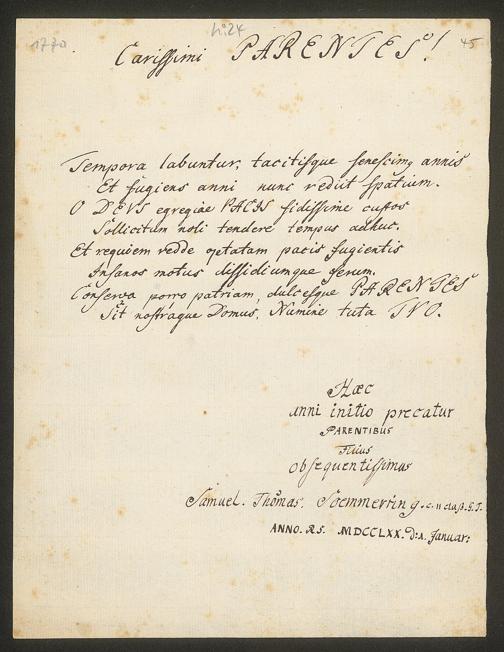 1770. N:o 24 45
Carissimi PARENTES!
Tempora labuntur, tacitisque senescimq annis
Et fugiens anni nunc rediit spatium.
O DEUS egregiae PACIS fidissime custos
Sollicitum noli tendere tempus adhuc.
Et requiem redde optatam pacis fugientis
Insanos motus dissidiumque ferum.
Conserva porro patriam, dulcesque PARENTES
Sit nostraque Domus, Numine tuta TVO.
Hæc
anni initio precatur
PARENTIBUS
Filius
obsequentissimus
Samuel. Thomas. Soemmerring.
ANNO. R.S. MDCCLXX. D: 1. Januar: